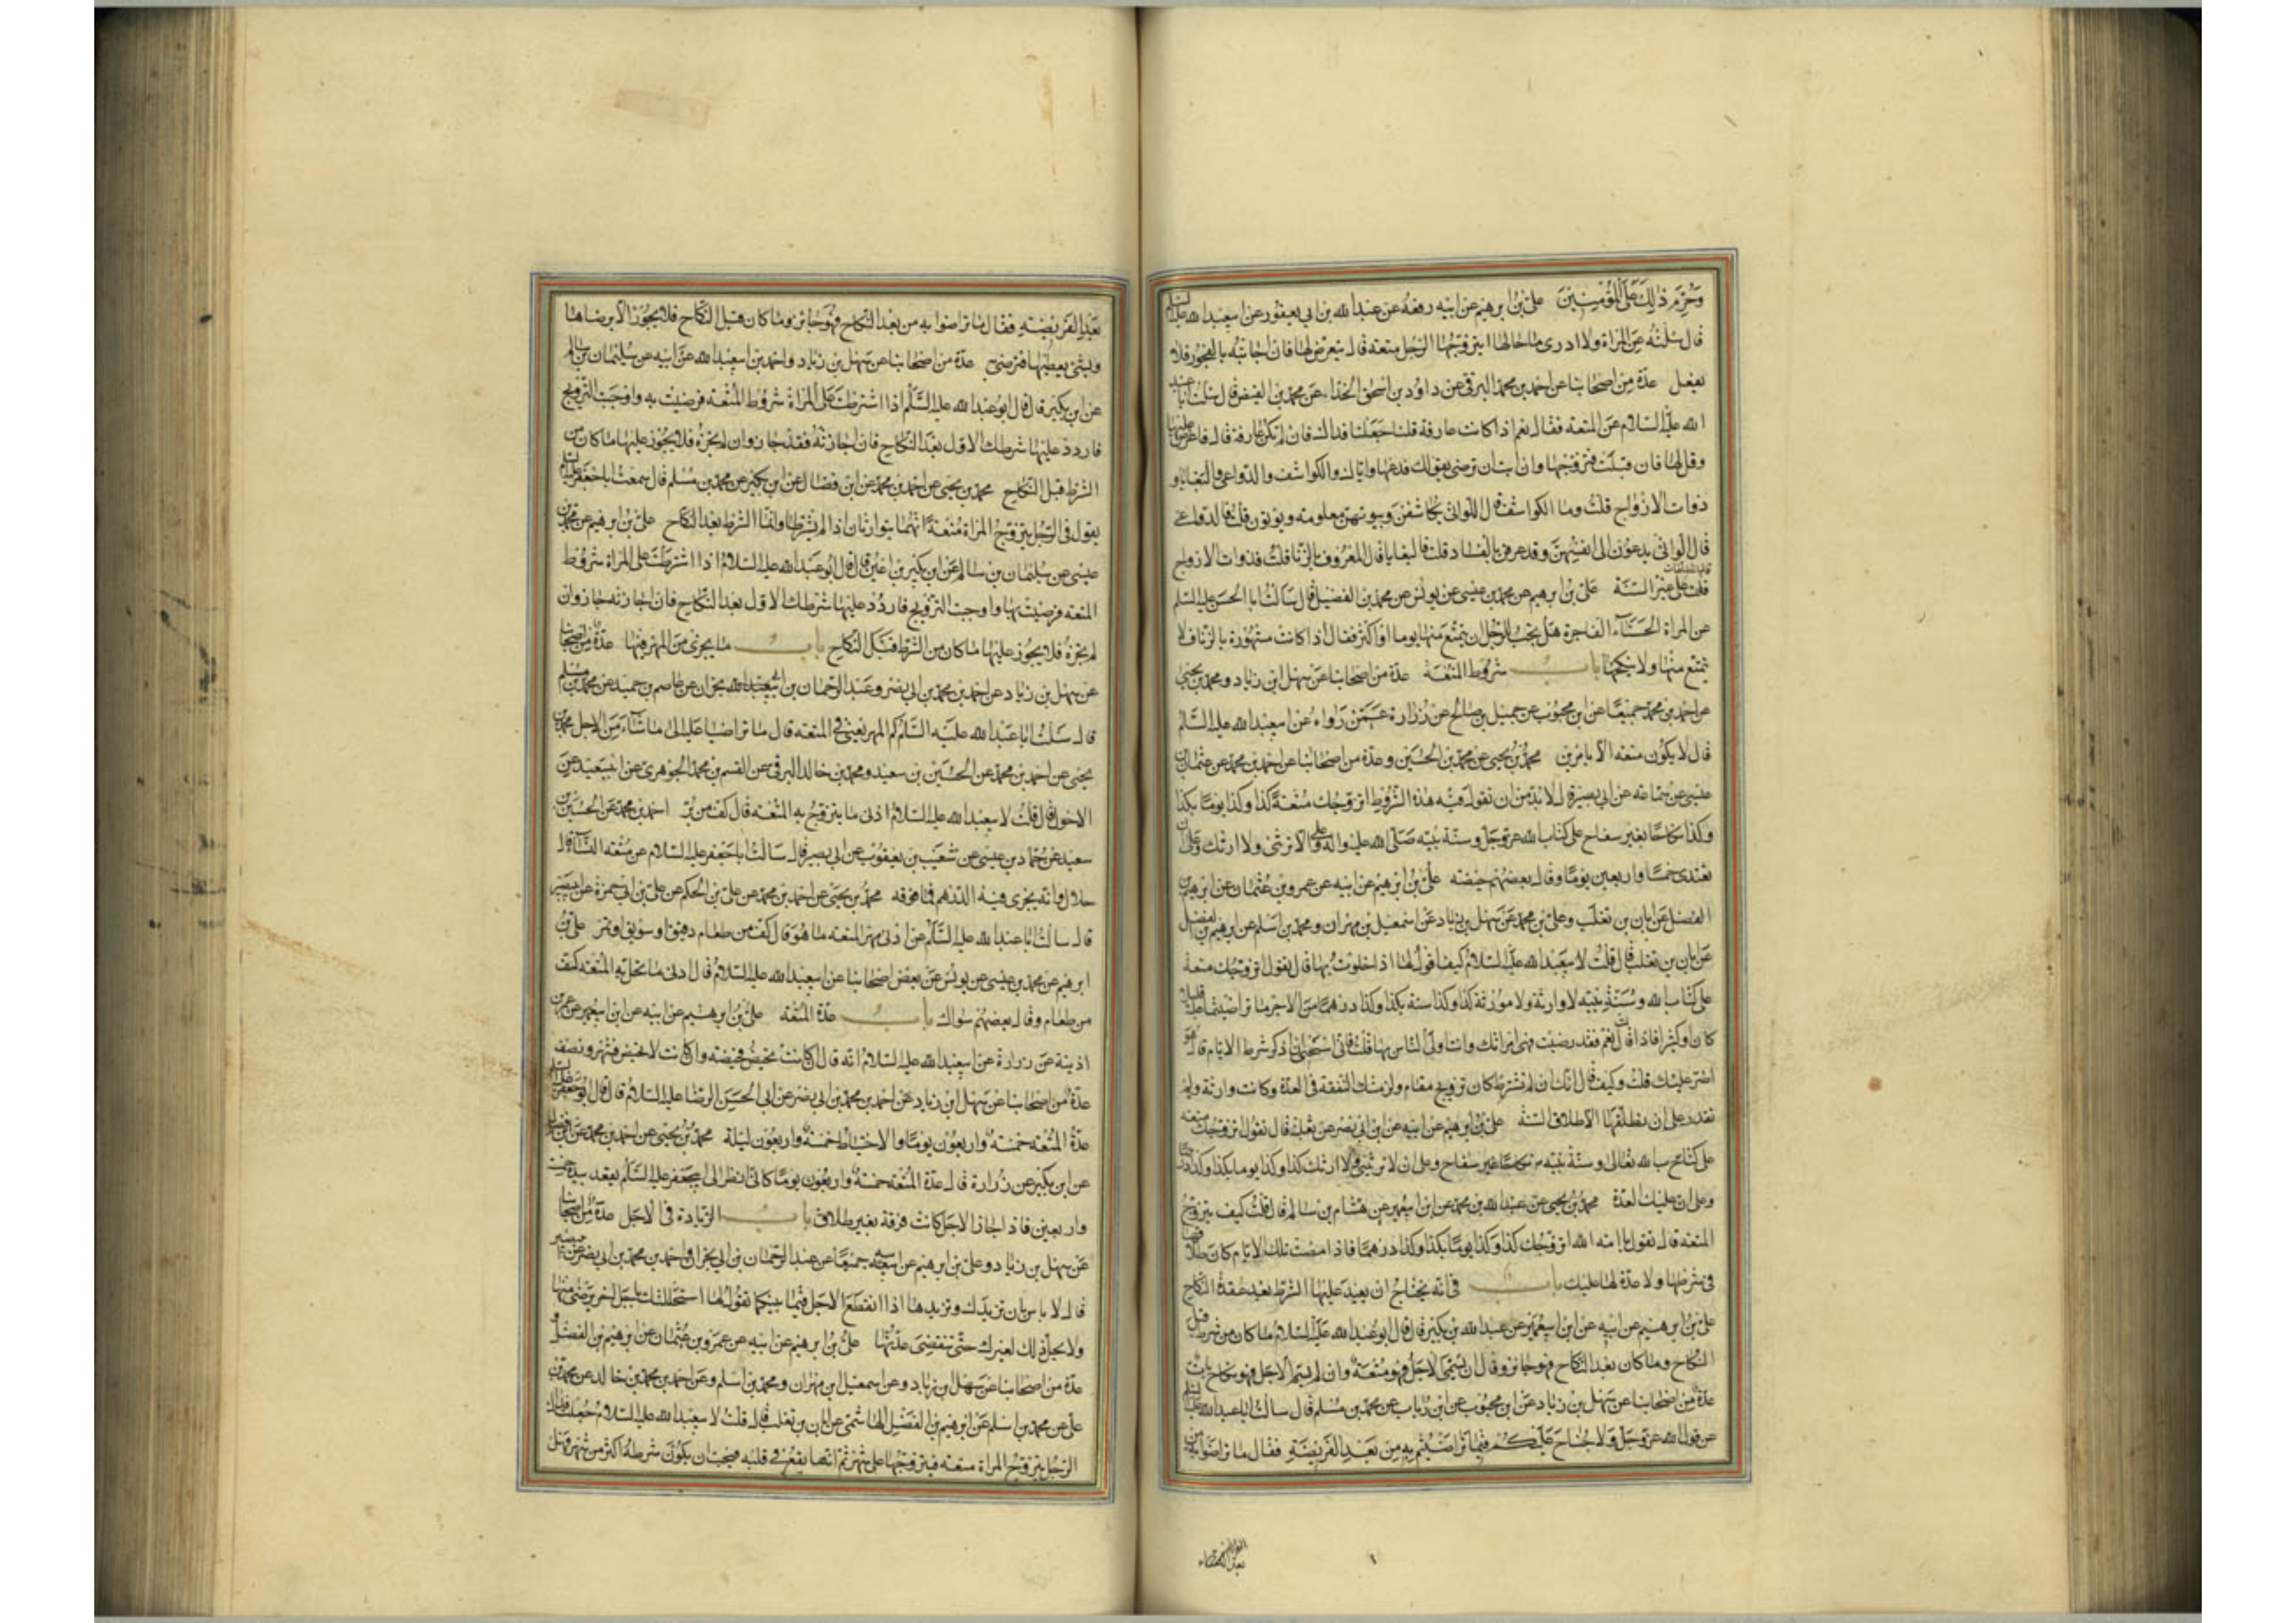 وَحُرِّمَ ذٰلِكَ عَلَى الْمُؤْمِنِينَ علي بن ابرهيم عن ابيه رفعه عن عبدالله بن ابي يعفور عن ابيعبدالله عليه السلام
قال سئلته عن المراة ولا ادرى ما حالها ايتزوجها الرجل متعة قال يتعرض لها فان اجابته بالفجور فلا
يفعل عدة من اصحابنا عن احمد بن محمد البرقى عن داود بن اسحق الحذاء عن محمد بن الفيض قال سئلت ابا عبد
الله عليه السلام عن المتعة فقال نعم اذا كانت عارفة قلنا جعلنا فداك فان لم تكن عارفة قال فاعرض عليها
وقل لها فان قبلت فتزوجها وان ابت ان ترضى بقولك فدعها واياك والكواشف والدواعى والبغايا و
ذوات الازواج قلت وما الكواشف قال اللواتى يكاشفن وبيوتهن معلومة ويؤتون قلت فالدواعى
قال اللواتى يدعون الى انفسهن وقد عرفن بالفساد قلت فالبغايا قال المعروف بالزنا قلت فذوات الازواج
قال المطلقات
على غير السنة علي بن ابرهيم عن محمد بن عيسى عن يونس عن محمد بن الفضيل قال سالت ابا الحسن عليه السلم
عن المراة الحسناء الفاجرة هل يجب للرجل ان يتمتع منها يوما او اكثر فقال اذا كانت مشهورة بالزنا فلا
يتمتع منها ولا ينكحها باب شروط المتعة عدة من اصحابنا عن سهل ابن زياد ومحمد بن يحيى
عن احمد بن محمد جميعا عن ابن محبوب عن جميل بن صالح عن زرارة عمن رواه عن ابيعبدالله عليه السلم
قال لا يكون متعة الا بامرين محمد بن يحيى عن محمد بن الحسين وعدة من اصحابنا عن احمد بن محمد عن عثمان بن
عيسى عن سماعة عن ابي بصير قال لابد من ان تقول فيه هذه الشروط اتزوجك متعة كذا وكذا يوما بكذا
وكذا نكاحا بغير سفاح على كتاب الله عزوجل وسنة نبيه صلى الله عليه واله وعلى الا ترثنى ولا ارثك وعلى ان
تعتدى خمسا واربعين يوما وقال بعضهم حيضة علي بن ابرهيم عن ابيه عن عمرو بن عثمان عن ابرهيم بن
الفضل عن ابان بن تغلب وعلي بن محمد عن سهل بن زياد عن اسمعيل بن مهران ومحمد بن اسلم عن ابرهيم بن الفضل
عن ابان بن تغلب قال قلت لابيعبدالله عليه السلام كيف اقول لها اذا خلوت بها قال تقول اتزوجك متعة
على كتاب الله وسنة نبيه لا وارثة ولا موروثة كذا وكذا سنة بكذا وكذا درهما من الاجر ما تراضيتما عليه قليلا
كان او كثيرا فاذا قالت نعم فقد رضيت فهى امراتك وانت اولى الناس بها قلت فانى استحيى ان اذكر شرط الايام قال هو
اضر عليك قلت وكيف قال انك ان لم تشترط كان تزويج مقام ولزمتك النفقة فى العدة وكانت وارثة ولم
تقدر على ان تطلقها الا طلاق السنة علي بن ابرهيم عن ابيه عن ابن ابي نصر عن ثعلبة قال تقول اتزوجك متعة
على كتاب الله تعالى وسنة نبيه نكاحا غير سفاح وعلى ان لا ترثينى ولا ارثك كذا وكذا يوما بكذا وكذا درهما
وعلى ان عليك العدة محمد بن يحيى عن عبدالله بن محمد عن ابن ابيعمير عن هشام بن سالم قال قلت كيف يتزوج
المتعة قال تقول يا امة الله اتزوجك كذا وكذا يوما بكذا وكذا درهما فاذا مضت تلك الايام كان طلاقها
فى شرطها ولا عدة لها عليك باب فى انه يحتاج ان يعيد عليها الشرط بعد عقدة النكاح
علي بن ابرهيم عن ابيه عن ابن ابيعمير عن عبدالله بن بكير قال قال ابو عبدالله عليه السلام ما كان من شرط قبل
النكاح وما كان بعد النكاح فهو جائز وقال ان يسمى الاجل فهو متعة وان لم يسم الاجل فهو نكاح بات
عدة من اصحابنا عن سهل بن زياد عن ابن محبوب عن ابن رئاب عن محمد بن مسلم قال سالت ابا عبدالله عليه السلام
عن قول الله عزوجل وَلَا جُنَاحَ عَلَيْكُمْ فِيمَا تَرَاضَيْتُمْ بِهِ مِنْ بَعْدِ الْفَرِيضَةِ فقال ما تراضوا به من
بَعْدِ الْفَرِيضَةِ فقال ما تراضوا به من بعد النكاح فهو جائز وما كان قبل النكاح فلا يجوز الا برضاها
وبشئ يعطيها فترضى عدة من اصحابنا عن سهل بن زياد واحمد بن ابيعبدالله عن ابيه عن سليمان بن سالم
عن ابن بكير قال قال ابو عبدالله عليه السلم اذا اشترطت على المراة شروط المتعة فرضيت به واوجبت التزويج
فاردد عليها شرطك الاول بعد النكاح فان اجازته فقد جاز وان لم تجزه فلا يجوز عليها ما كان من
الشرط قبل النكاح محمد بن يحيى عن احمد بن محمد عن ابن فضال عن ابن بكير عن محمد بن مسلم قال سمعت اباجعفر عليه السلام
يقول فى الرجل يتزوج المراة متعة انهما يتوارثان اذا لم يشترطا وانما الشرط بعد النكاح علي بن ابرهيم عن محمد بن
عيسى عن سليمان بن سالم عن ابن بكير بن اعين قال قال ابو عبدالله عليه السلام اذا اشترطت على المراة شروط
المتعة فرضيت بها واوجبت التزويج فاردد عليها شرطك الاول بعد النكاح فان اجازته جاز وان
لم تجزه فلا يجوز عليها ما كان من الشرط قبل النكاح باب ما يجزى من المهر فيها عدة من اصحابنا
عن سهل بن زياد عن احمد بن محمد بن ابي نصر وعبد الرحمان بن ابي نجران عن عاصم بن حميد عن محمد بن مسلم
قال سئلت ابا عبدالله عليه السلم كم المهر يعنى فى المتعة قال ما تراضيا عليه الى ما شاء من الاجل محمد بن
يحيى عن احمد بن محمد عن الحسين بن سعيد ومحمد بن خالد البرقى عن القسم بن محمد الجوهرى عن ابيسعيد عن
الاحول قال قلت لابيعبدالله عليه السلام ادنى ما يتزوج به المتعة قال كف من بر احمد بن محمد عن الحسين بن
سعيد عن حماد بن عيسى عن شعيب بن يعقوب عن ابي بصير قال سالت اباجعفر عليه السلام عن متعة النساء قال
حلال وانه يجزى فيه الدرهم فما فوقه محمد بن يحيى عن احمد بن محمد عن علي بن الحكم عن علي بن ابي حمزة عن ابي بصير
قال سالت ابا عبدالله عليه السلم عن ادنى مهر المتعة ما هو قال كف من طعام دقيق او سويق او تمر علي بن
ابرهيم عن محمد بن عيسى عن يونس عن بعض اصحابنا عن ابيعبدالله عليه السلام قال ادنى ما تحل به المتعة كف
من طعام وقال بعضهم سواك باب عدة المتعة علي بن ابرهيم عن ابيه عن ابن ابيعمير عن عمر بن
اذينة عن زرارة عن ابيعبدالله عليه السلام انه قال ان كانت تحيض فحيضة وان كانت لا تحيض فشهر ونصف
عدة من اصحابنا عن سهل ابن زياد عن احمد بن محمد بن ابي نصر عن ابي الحسن الرضا عليه السلام قال قال ابو جعفر عليه السلام
عدة المتعة خمسة واربعون يوما والاحتياط خمسة واربعون ليلة محمد بن يحيى عن احمد بن محمد عن ابن فضال
عن ابن بكير عن زرارة قال عدة المتعة خمسة واربعون يوما كانى انظر الى ابيجعفر عليه السلم يعقد بيده خمسة
واربعين فاذا جاز الاجل كانت فرقة بغير طلاق باب الزيادة فى الاجل عدة من اصحابنا
عن سهل بن زياد وعلي بن ابرهيم عن ابيه جميعا عن عبد الرحمان بن ابي نجران واحمد بن محمد بن ابي نصر عن ابي بصير
قال لا باس بان تزيدك وتزيدها اذا انقطع الاجل فيما بينكما تقول لها استحللتك باجل اخر برضى منها
ولا يحل ذلك لغيرك حتى تنقضى عدتها علي بن ابرهيم عن ابيه عن عمرو بن عثمان عن ابرهيم بن الفضل و
عدة من اصحابنا عن سهل بن زياد وعن اسمعيل بن مهران ومحمد بن اسلم وعن احمد بن محمد بن خالد عن محمد بن
علي عن محمد بن اسلم عن ابرهيم بن الفضل الهاشمى عن ابان بن تغلب قال قلت لابيعبدالله عليه السلام جعلت فداك
الرجل يتزوج المراة متعة فيتزوجها على شهر ثم انها يقع فى قلبه فيحب ان يكون شرطه اكثر من شهر وهل